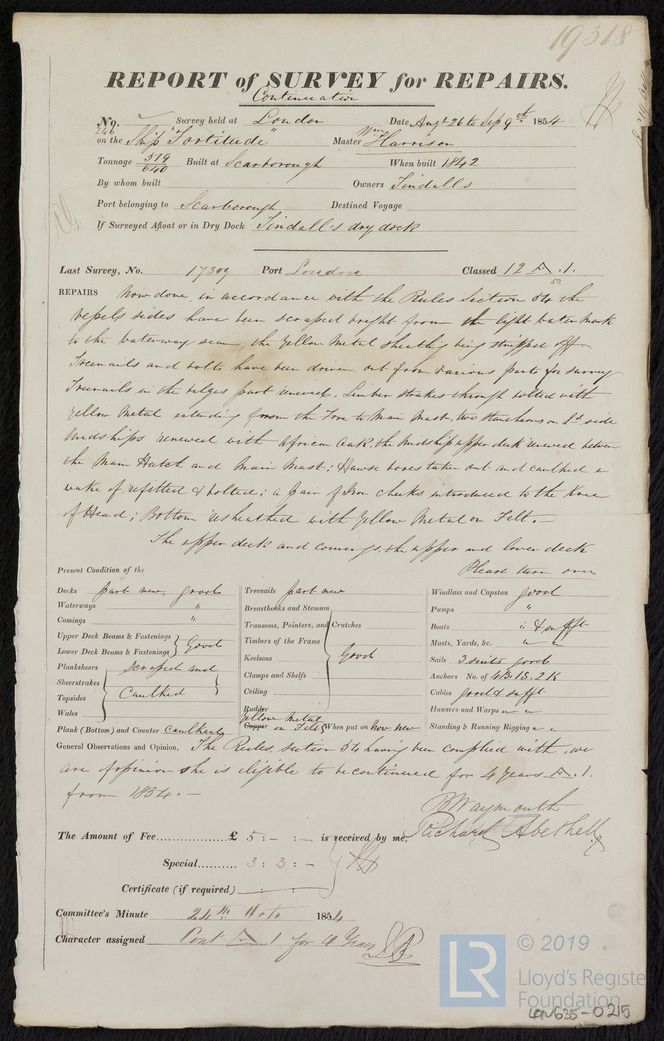 19318
REPORT of SURVEY for REPAIRS.
Continuation
No. 246 Survey held at London Date, Augt 26 to Sep 9th 1854
on the Ship "Fortitude" Master Wm Harrison
Tonnage 519 640 Built at Scarborough When built 1842
By whom built Owners Tindalls
Port belonging to Scarborough Destined Voyage
If Surveyed Afloat or in Dry Dock Tindall's dry dock
Last Survey, No. 17399 Port London Classed 12 A.1.
REPAIRS Now done, in accordance with the Rules Section 54 the
vessels sides have been scraped bright from the light water mark
to the waterway seam, the Yellow Metal sheathg being stripped off
Treenails and bolts have been driven out from various parts for survey
Treenails in the bilges part renewed. Limber strakes through bolted with
yellow Metal extending from the Fore to Main Mast, two stanchions on Sd side
Midships renewed with African Oak, the Midship upper deck renewed between
the Main Hatch and Main Mast; Hawse bones taken out and caulked in
wake of, refitted & bolted; a pair of Iron cheeks introduced to the Knee
of Head; Bottom resheathed with Yellow Metal on Felt.
The upper deck and comings, the upper and lower deck
Please turn over
Present Condition of the
Decks part new, good
Waterways "
Comings "
Upper Deck Beams & Fastenings
Lower Deck Beams & Fastenings } Good
Planksheers
Sheerstrakes
Topsides
Wales } scraped and Caulked
Plank (Bottom) and Counter caulked
Treenails part new
Breasthooks and Stemson
Transoms, Pointers, and Crutches
Timbers of the Frame
Keelsons
Clamps and Shelfs
Ceiling
Rudder } Good
Copper Yellow Metal on Felt When put on Now new
Windlass and Capstan good
Pumps "
Boats " & sufft
Masts, Yards, &c. " "
Sails 3 suits good
Anchors No. of 4B.1S.2K
Cables good & sufft
Hawsers and Warps " "
Standing & Running Rigging " "
General Observations and Opinion, The Rules, section 54 having been complied with, we
are of opinion she is eligible to be continued for 4 Years A.1.
from 1854.
B Waymouth
Richard Abethell
The Amount of Fee £ 5 : - : - is received by me,
Special 3 : 3 : -
Certificate (if required) : :
Committee's Minute 24th Octr 1854
Character assigned Cont A 1 for 4 Years
LR
© 2019
Lloyd's Register
Foundation
LON635-0215